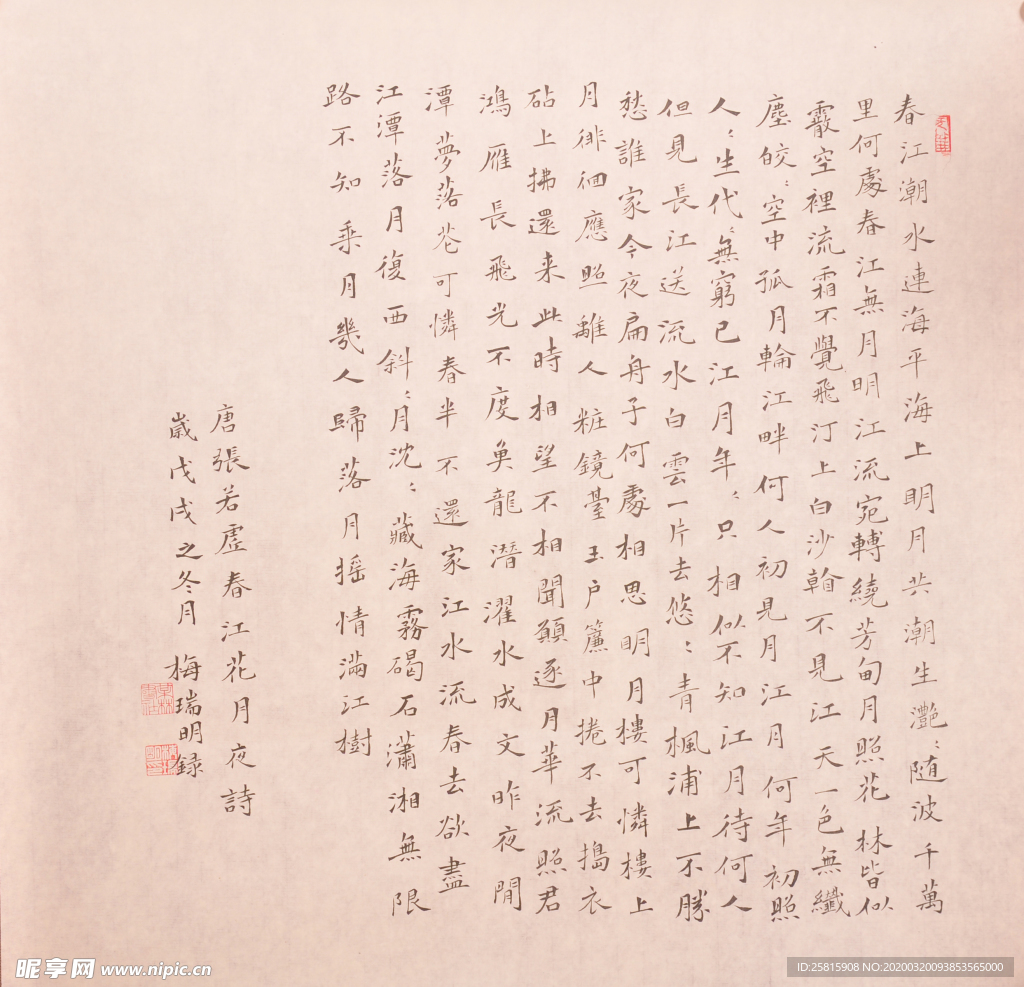 春江潮水連海平海上明月共潮生灩〻随波千萬
里何處春江無月明江流宛轉繞芳甸月照花林皆似
霰空裡流霜不覺飛汀上白沙翰不見江天一色無纖
塵皎〻空中孤月輪江畔何人初見月江月何年初照
人〻生代〻無窮已江月年〻只相似不知江月待何人
但見長江送流水白雲一片去悠〻青楓浦上不勝
愁誰家今夜扁舟子何處相思明月樓可憐樓上
月徘徊應照離人粧鏡臺玉户簾中捲不去搗衣
砧上拂還来此時相望不相聞願逐月華流照君
鴻雁長飛光不度魚龍潛濯水成文昨夜閒
潭夢落花可憐春半不還家江水流春去欲盡
江潭落月復西斜〻月沈〻藏海霧碣石瀟湘無限
路不知乘月幾人歸落月摇情滿江樹
唐張若虛春江花月夜詩
歲戊戌之冬月梅瑞明録
昵享网 www.nipic.cn
ID:25815908 NO:20200320093853565000